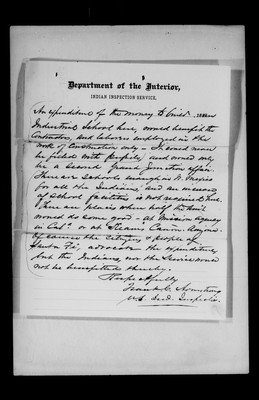 Department of the Interior,
INDIAN INSPECTION SERVICE.
An expenditure of the money to build an
Industrial School here, would benefit the
Contractor, and laborers employed in the
work of Construction only - It could never
be filled with pupils, and would only
be a second Grand Junction affair.
There are schools enough in N. Mexico
for all the Indians and an increase
of school facilities is not required here.
There are places where half the
would do some good - at Mission Agency
in Cal. or at Keams Cañon Arizona.
Of course the citizens & people of
Santa Fé, advocate the expenditure
but the Indians, nor the Service would
not be benefitted thereby.
Respectfully
Frank C. Armstrong
U.S. Ind. Inspector